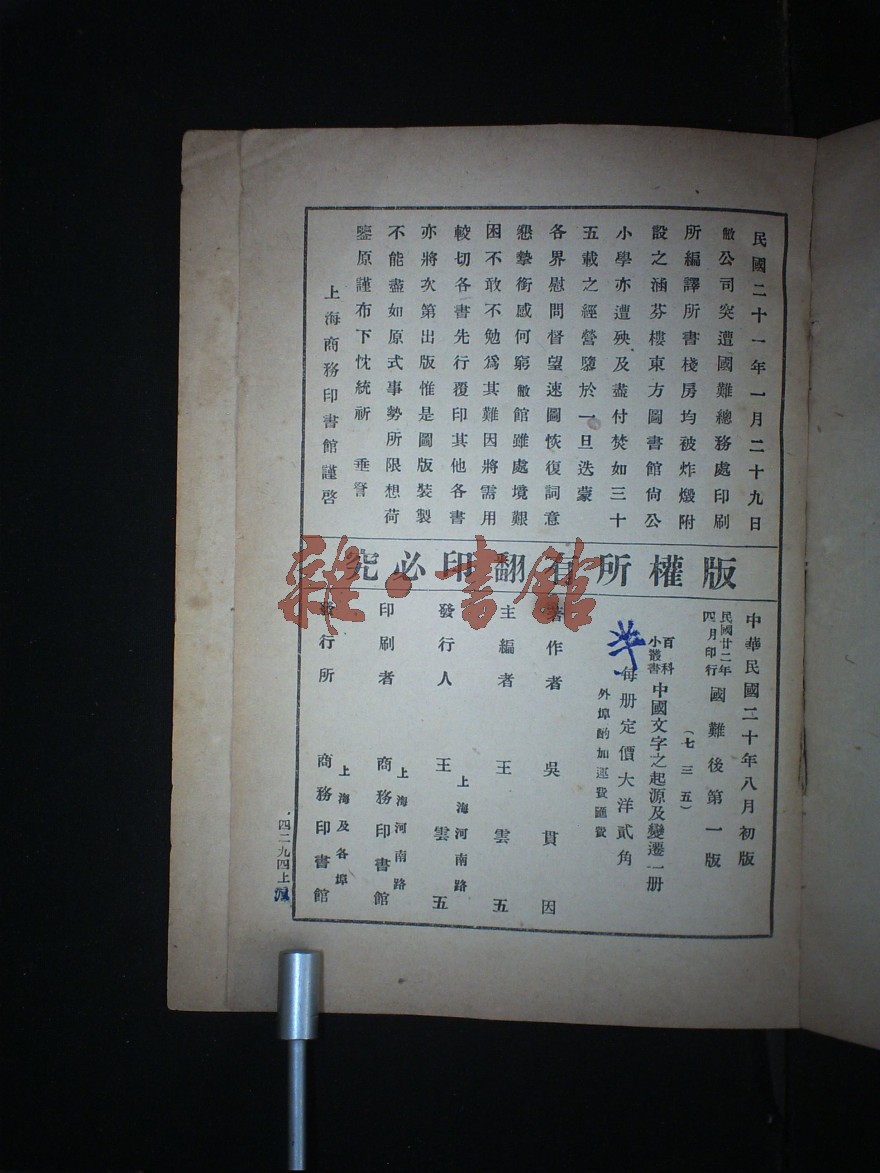 民國二十一年一月二十九日
敝公司突遭國難總務處印刷
所編譯所書棧房均被炸燬附
設之涵芬樓東方圖書館尚公
小學亦遭殃及盡付焚如三十
五載之經營隳於一旦迭蒙
各界慰問督望速圖恢復詞意
懇摯銜感何窮敝館雖處境艱
困不敢不勉爲其難因將需用
較切各書先行覆印其他各書
亦將次第出版惟是圖版裝製
不能盡如原式事勢所限想荷
鑒原謹布下忱統祈 垂詧
上海商務印書館謹啓
版權所有翻印必究
中華民國二十年八月初版
民國廿二年四月印行 國難後第一版
(七三五)
百科小叢書 中國文字之起源及變遷一册
每册定價大洋貳角
外埠酌加運費匯費
著作者 吳貫因
主編者 王雲五
發行人 上海河南路 王雲五
印刷者 上海河南路 商務印書館
發行所 上海及各埠 商務印書館
四二九四上
雜·書館